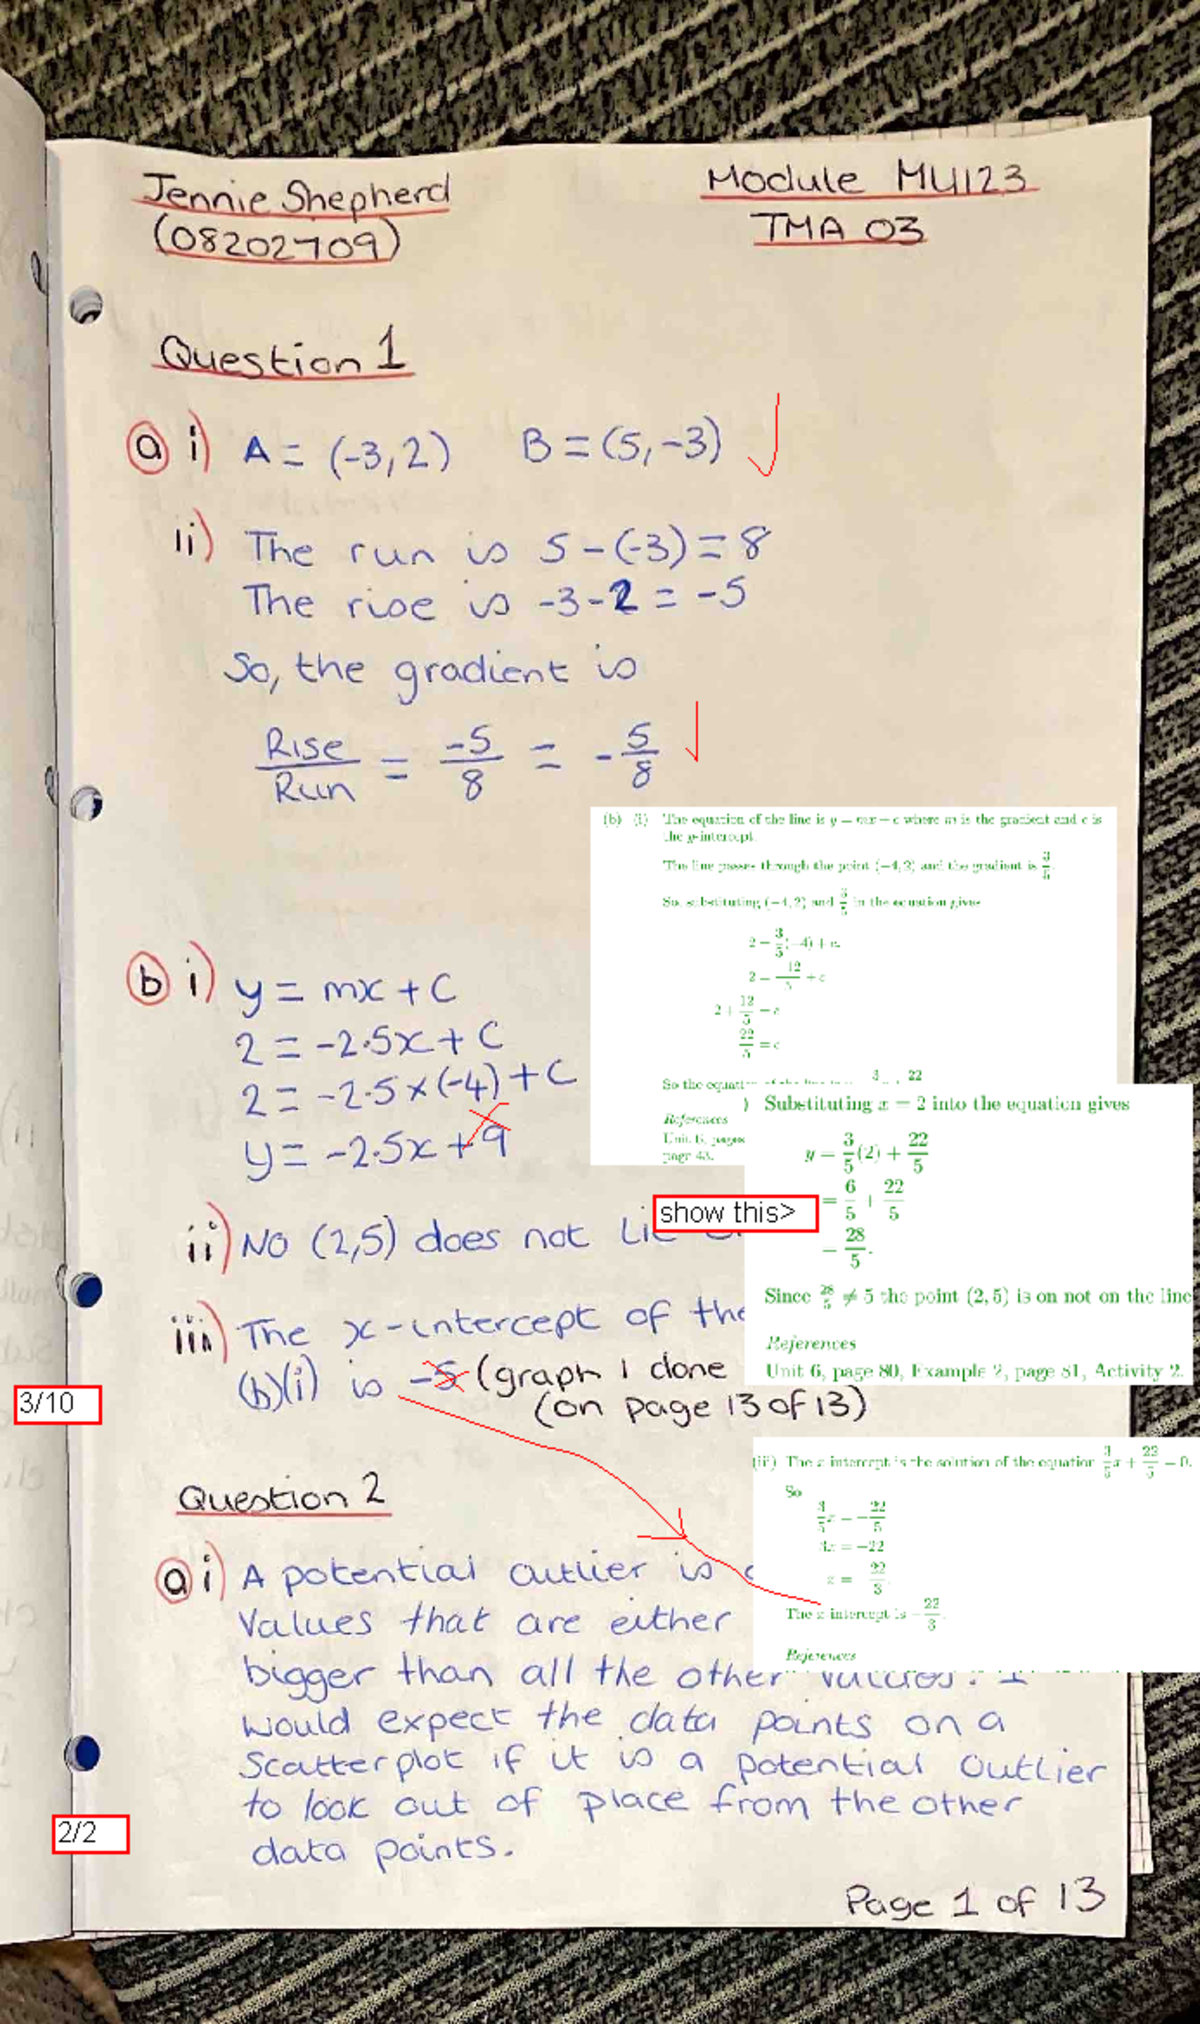 Jennie Shepherd
(08202709)
Module MU123
TMA 03
Question 1
a i) A = (-3,2) B = (5,-3)
ii) The run is 5-(-3) = 8
The rise is -3-2 = -5
So, the gradient is
Rise/Run = -5/8 = -5/8
(b) (i) The equation of the line is y = mx + c where m is the gradient and c is
the y-intercept.
The line passes through the point (-4, 2) and the gradient is 3/5.
So, substituting (-4, 2) and 3/5 in the equation gives
2 = 3/5(-4) + c
2 = -12/5 + c
2 + 12/5 = c
22/5 = c
So the equati
3 22
References
Unit 6, pages
page 43.
b i) y = mx + c
2 = -2.5x + c
2 = -2.5×(-4) + c
y = -2.5x + 9
) Substituting x = 2 into the equation gives
y = 3/5(2) + 22/5
= 6/5 + 22/5
= 28/5.
Since 28/5 ≠ 5 the point (2, 5) is on not on the line
References
Unit 6, page 80, Example 2, page 81, Activity 2.
show this>
ii) No (2,5) does not lie
iii) The x-intercept of the
(b)(i) is -5 (graph I done
(on page 13 of 13)
3/10
(iii) The x-intercept is the solution of the equation 3/5x + 22/5 = 0.
So
3/5x = -22/5
3x = -22
x = -22/3
The x-intercept is -22/3.
References
Question 2
a i) A potential outlier is
values that are either
bigger than all the other values. I
would expect the data points on a
Scatterplot if it is a potential outlier
to look out of place from the other
data points.
2/2
Page 1 of 13